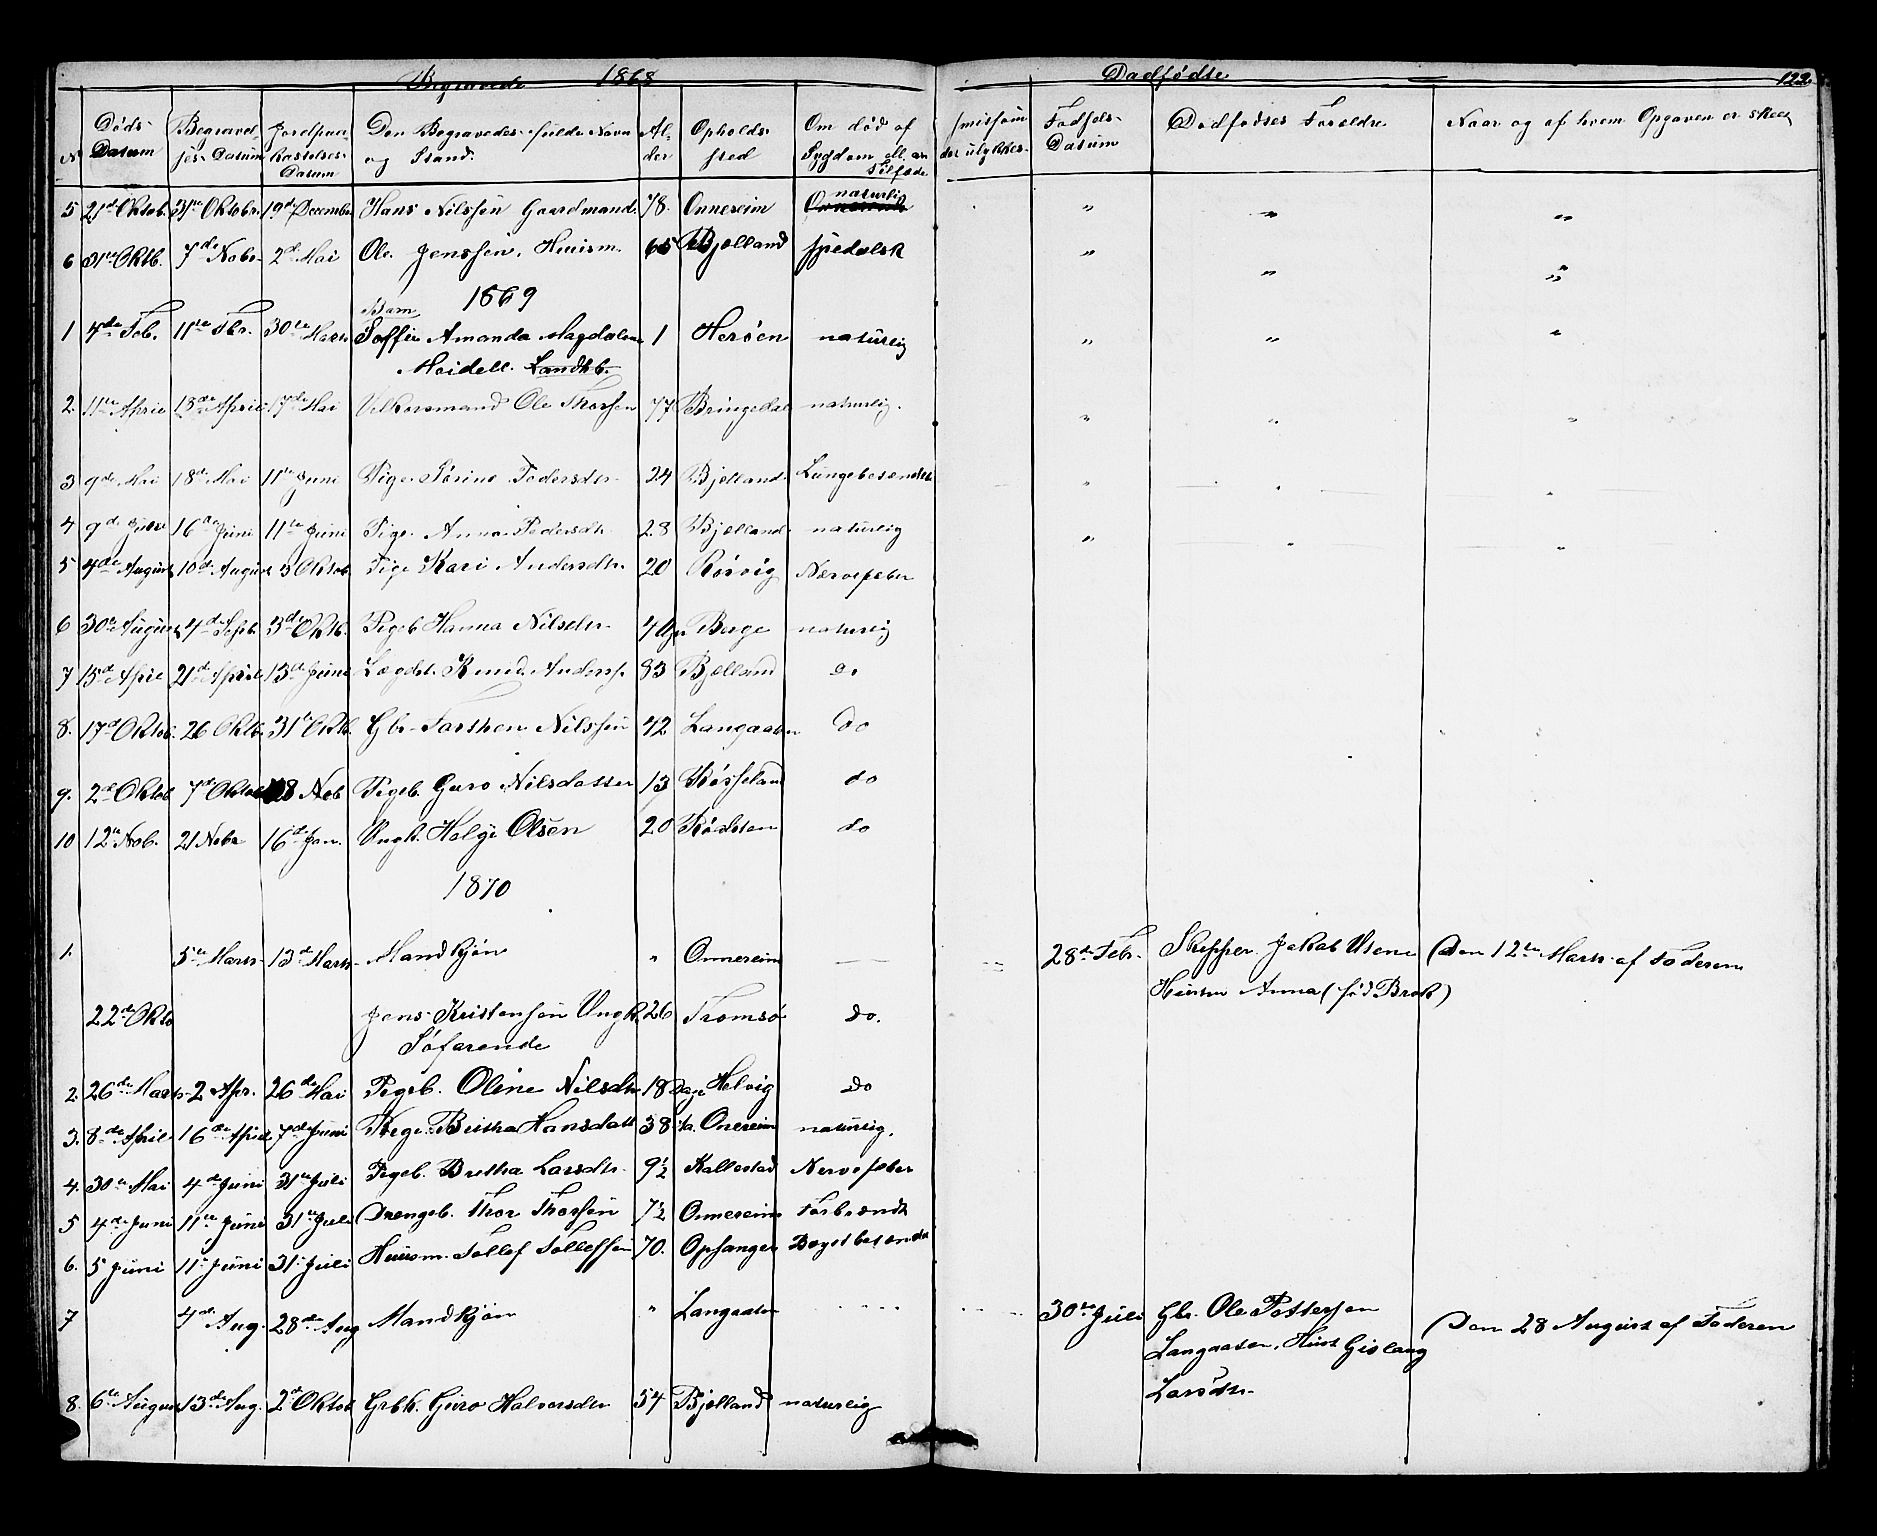 Begravede 1868 Dødfødte 122
N Døds-Datum Begravel-ses-Datum Jordpaa-kastelses-Datum Den Begravedes fulde Navn og Stand. Al-der Opholds-sted Om død af Sygdom ell. an Tilfæde smitsom der ulykkes- Fødsels-Datum Dødfødtes Forældre Naar og af hvem Opgaven er skeet
5 21de Oktob. 31te Oktober 19de December Hans Nilssen Gaardmand. 78. Onnereim naturlig " " "
6 31te Oktb. 7de Nobr. 2de Mai Ole Jenssen. Huusm. 65 Bjelland spedalsk " " "
1869
1 4de Feb. 11te Fbr. 30te Marts Barn Soffie Amanda Magdalena 1 Herøen naturlig " " "
Meidell. Landkb.
2. 11te April 18de April 17de Mai Velkorsmand Ole Thorsen 77 Bringedal naturlig. " " "
3 9de Mai 18de Mai 11te Juni Pige Sørine Pedersdtr. 24 Bjelland Lungebetændels " " "
4 9de Juni 16de Juni 11te Juni Pige Anna Pedersdtr 28 Bjelland naturlig " " "
5 4de August 10de August 3 Oktob. Pige Kari Andersdtr. 20 Rørvig Nervefeber
6 30te August 4de Septb. 3de Oktb. Pigeb. Hanna Nilsdtr. Berge naturlig
7 15de April 21de April 13de Juni Lægdsl. Knud Anderss. 83 Bjelland do
8. 17de Oktob. 26 Oktb. 31te Oktb. Gbr. Torsten Nilssen 42 Langaasen Do
9. 2de Oktob 7de Oktob 28 Nob Pigeb. Guro Nilsdatter 13 Røsseland do
10 12te Nob. 21 Nobr 16de Jan. Ungk. Helge Olsen 20 do
1870
1. 5te Marts 13de Marts Mandkjøn " Onnereim 28de Febr. Skipper Jakob Olsen Den 12te Marts af Faderen
Hustru Anna (fød Brok)
22de Okto Jens Kristensen Ungk. 26 Tromsø do.
Søfarende
2. 26de Marts 2 Apr. 26de Mai Pigeb. Oline Nilsdtr 18 Dage Helvig do
3. 8de April 16de April 7de Juni Pige Britha Hansdatt 38 Onereim naturlig.
4. 30te Mai 4de Juni 31te Juli Pigeb. Bretha Larsdtr. 9½ Kallestad Nervefeber
5 4de Juni 11te Juni 31te Juli Drengeb. Thor Thorsen 7½ Onnereim Forbrændt
6. 5 Juni 11te Juni 31te Juli Huusm. Tollef Tollefsen 70. Opsanger Brystbetænd
7 4de Aug. 28de Aug Mandkjøn " Langaasen 30te Juli Gbr. Ole Pettersen Den 28 August af Faderen
Langaasen. Hust Gislaug
Larsdtr.
8. 6te August 13de Aug. 2de Oktob Grbk. Guro Halvorsdtr 54 Bjelland naturlig